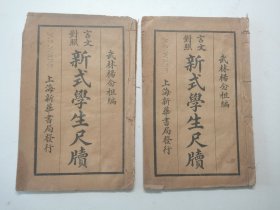 武林楊公祖編
言文對照
新式學生尺牘
上海新華書局發行
武林楊公祖編
言文對照
新式學生尺牘
上海新華書局發行